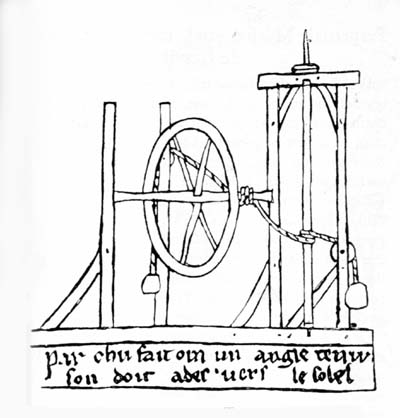 par chu fait om un angle tenir
son doit ades uers le solel